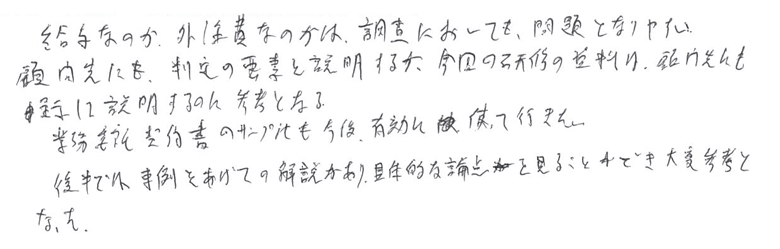 給与なのか、外注費なのかは、調査においても、問題となりやすい
顧問先にも、判定の要素を説明する 今回の研修の資料は、顧問先にも
に説明するのに参考となる
業務委託契約書のサンプルも今後、有効に使って行きたい
後半では事例をあげての解説があり、具体的な論点を見ることができ大変参考と
なった。